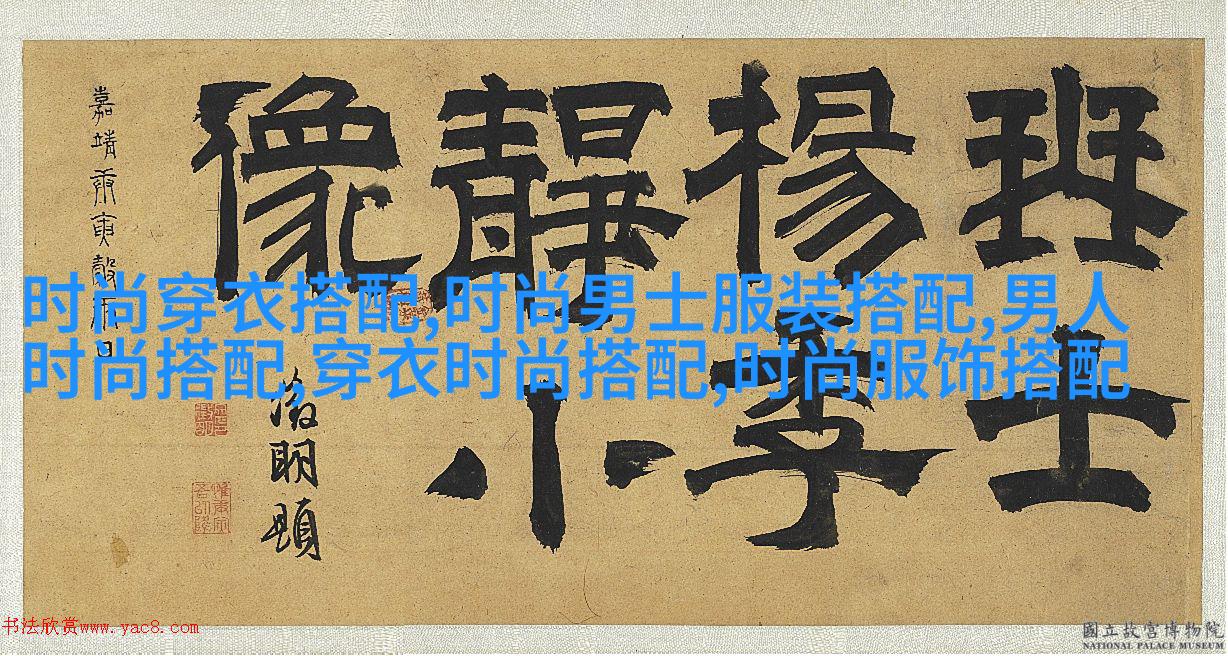 琴士
楊季
靜小
像
嘉靖庚寅穀雨日
徵明題
时尚穿衣搭配,时尚男士服装搭配,男人
时尚搭配,穿衣时尚搭配,时尚服饰搭配
书法欣赏www.yac8.com
國立故宮博物院
NATIONAL PALACE MUSEUM